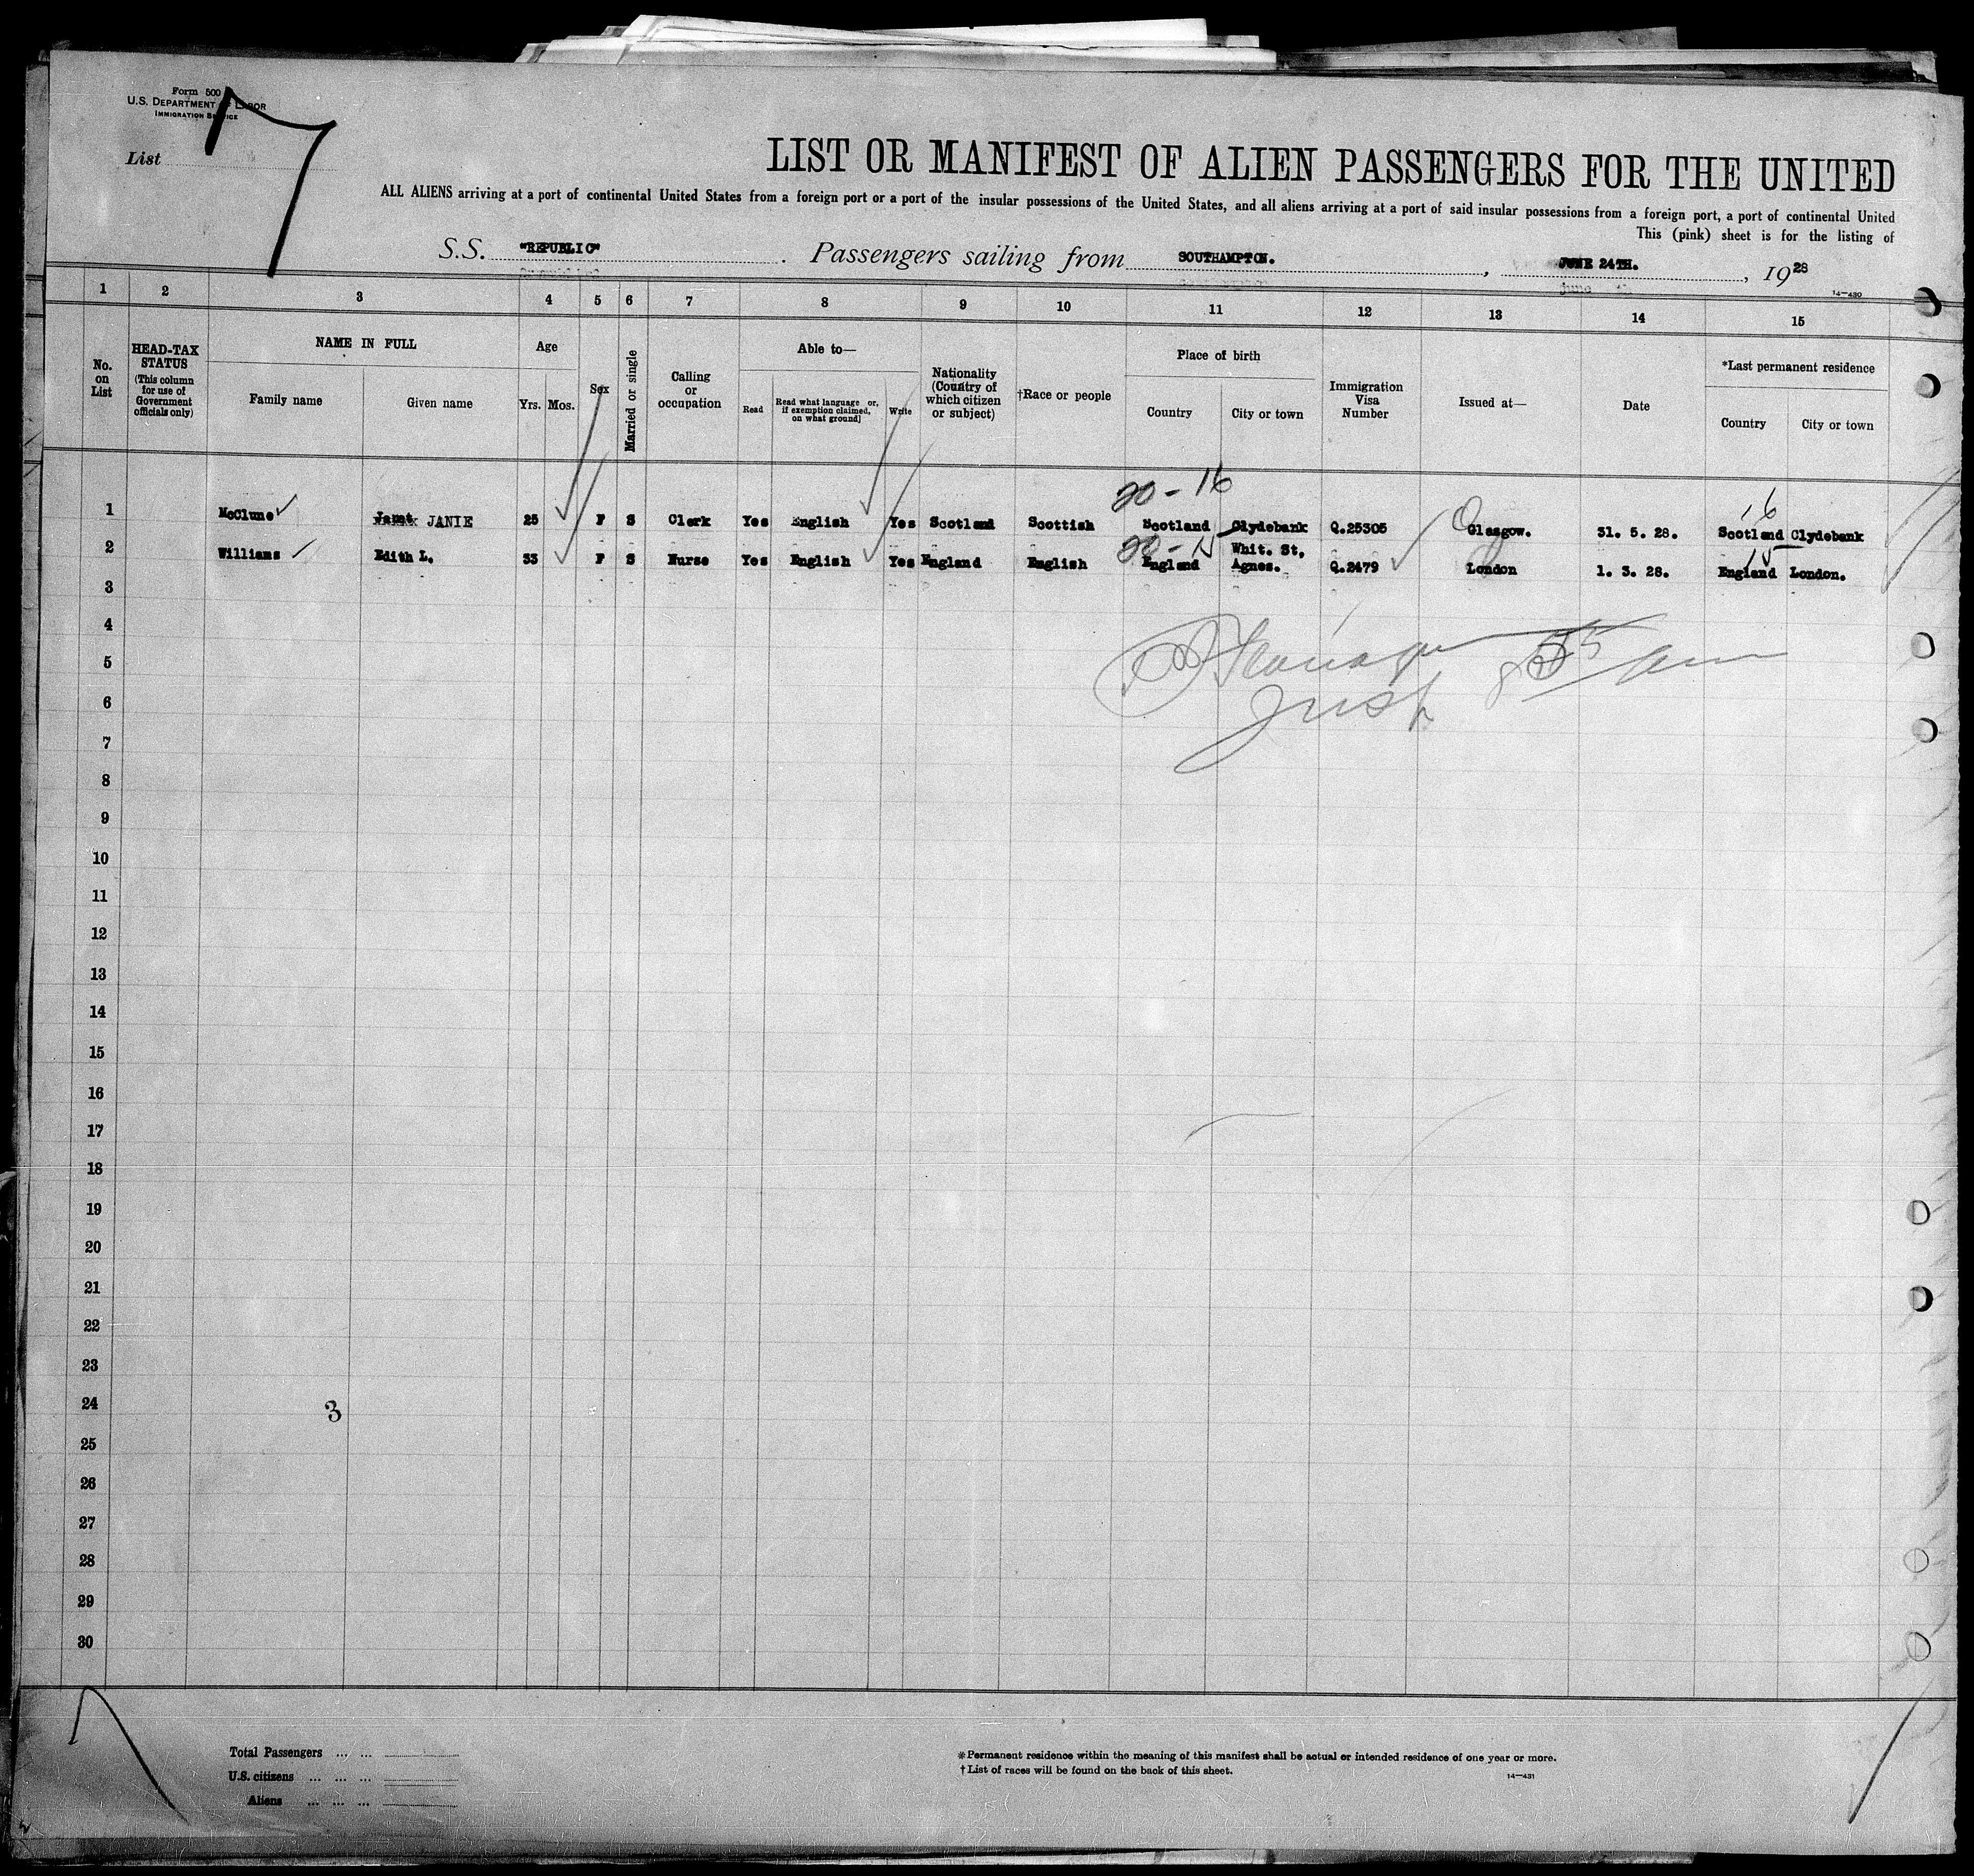 Form 500
U.S. DEPARTMENT OF LABOR
IMMIGRATION SERVICE
List
7
LIST OR MANIFEST OF ALIEN PASSENGERS FOR THE UNITED
ALL ALIENS arriving at a port of continental United States from a foreign port or a port of the insular possessions of the United States, and all aliens arriving at a port of said insular possessions from a foreign port, a port of continental United
This (pink) sheet is for the listing of
S.S. "REPUBLIC" . Passengers sailing from SOUTHAMPTON. , JUNE 24TH. , 1928
14—430
1 2 3 4 5 6 7 8 9 10 11 12 13 14 15
No. on List
HEAD-TAX STATUS (This column for use of Government officials only)
NAME IN FULL
Family name Given name
Age
Yrs. Mos.
Sex
Married or single
Calling or occupation
Able to—
Read Read what language or, if exemption claimed, on what ground] Write
Nationality (Country of which citizen or subject)
†Race or people
Place of birth
Country City or town
Immigration Visa Number
Issued at—
Date
*Last permanent residence
Country City or town
20 - 16
16
1 McClune Janet JANIE 25 F S Clerk Yes English Yes Scotland Scottish Scotland Clydebank Q.25305 Glasgow. 31. 5. 28. Scotland Clydebank
20 - 15
15
2 Williams Edith L. 33 F S Nurse Yes English Yes England English England Whit. St, Agnes. Q.2479 London 1. 3. 28. England London.
3
4
5
6
7
8
9
10
11
12
13
14
15
16
17
18
19
20
21
22
23
24
3
25
26
27
28
29
30
Total Passengers ... ...
U.S. citizens ... ... ...
Aliens ... ... ...
*Permanent residence within the meaning of this manifest shall be actual or intended residence of one year or more.
†List of races will be found on the back of this sheet.
14—431